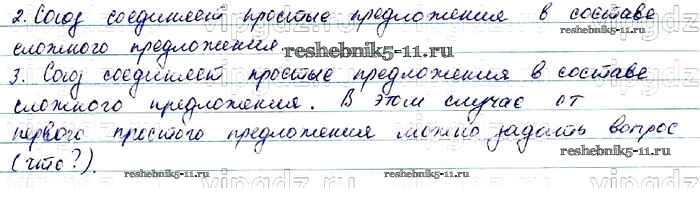 2. Союз соединяет простые предложения в составе
сложного предложения
reshebnik5-11.ru
3. Союз соединяет простые предложения в составе
сложного предложения. В этом случае от
первого простого предложения можно задать вопрос
(что?).
reshebnik5-11.ru
reshebnik5-11.ru
vipgdz.ru